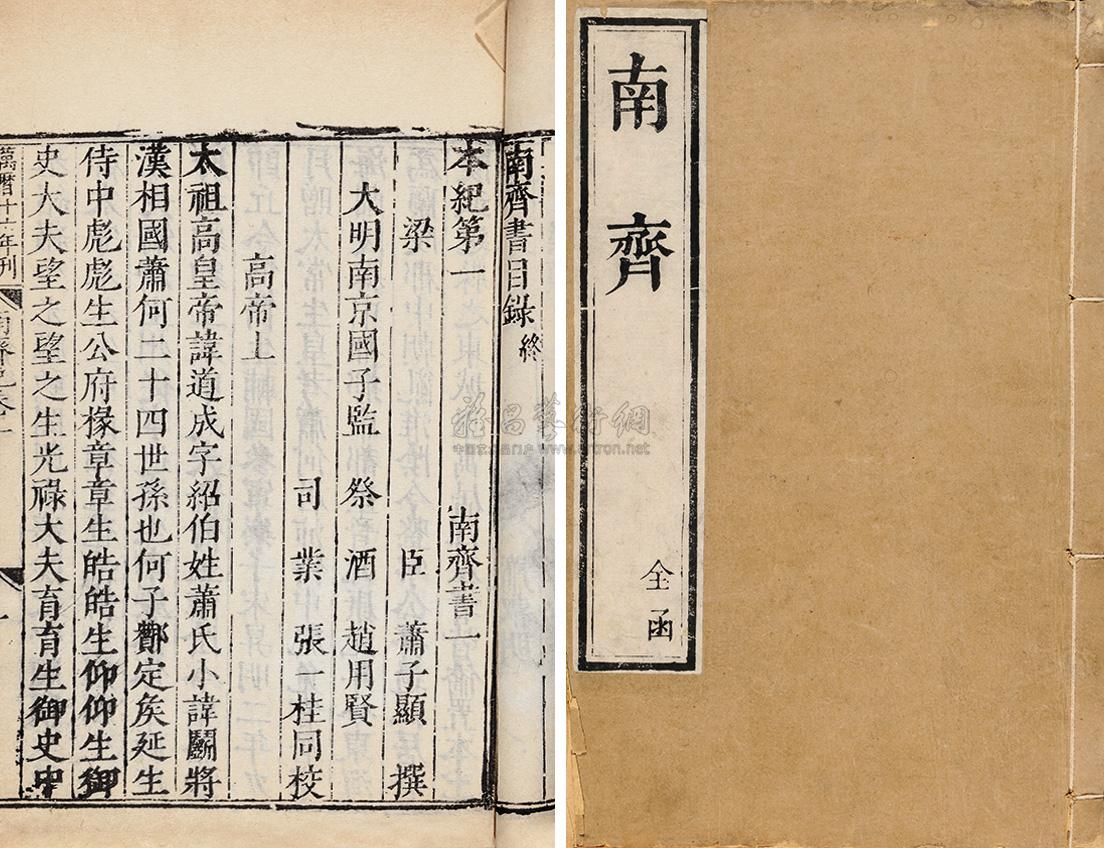 南齊書目錄終
本紀第一 南齊書一
梁 臣 蕭子顯 撰
大明南京國子監 祭 酒 趙用賢
司 業 張一桂同校
高帝上
太祖高皇帝諱道成字紹伯姓蕭氏小諱鬭將
漢相國蕭何二十四世孫也何子酇定矦延生
侍中彪彪生公府椽章章生皓皓生仰仰生御
史大夫望之望之生光祿大夫育育生御史中
萬曆十
年刊
南齊
南齊
全函
雅昌藝術網
www.artron.net